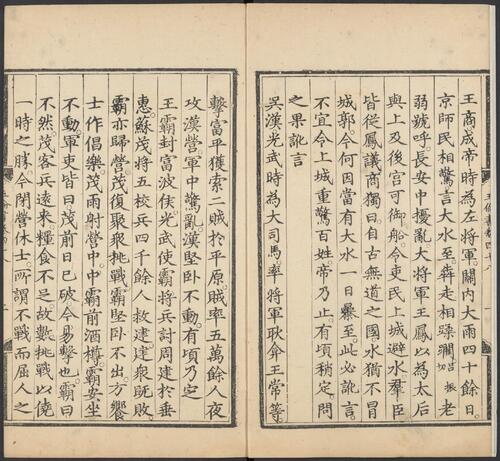 王商成帝時為左將軍關內大雨四十餘日
京師民相驚言大水至犇走相蹂躪呂振切老
弱號呼長安中擾亂大將軍王鳳以為太后
與上及後宮可御船令吏民上城避水羣臣
皆從鳳議商獨曰自古無道之國水猶不冒
城郭今何因當有大水一日暴至此必訛言
不宜令上城重驚百姓帝乃止有頃稍定問
之果訛言
吳漢光武時為大司馬率將軍耿弇王常等
擊富平獲索二賊於平原賊率五萬餘人夜
攻漢營軍中驚亂漢堅卧不動有頃乃定
王霸封富波侯光武使霸將兵討周建於垂
惠蘇茂將五校兵四千餘人救建建衆既敗
霸亦歸營茂復聚衆挑戰霸堅卧不出方饗
士作倡樂茂雨射營中中霸前酒樽霸安坐
不動軍吏皆曰茂前日已破今易擊也霸曰
不然茂客兵遠來糧食不足故數挑戰以僥
一時之勝今閉營休士所謂不戰而屈人之